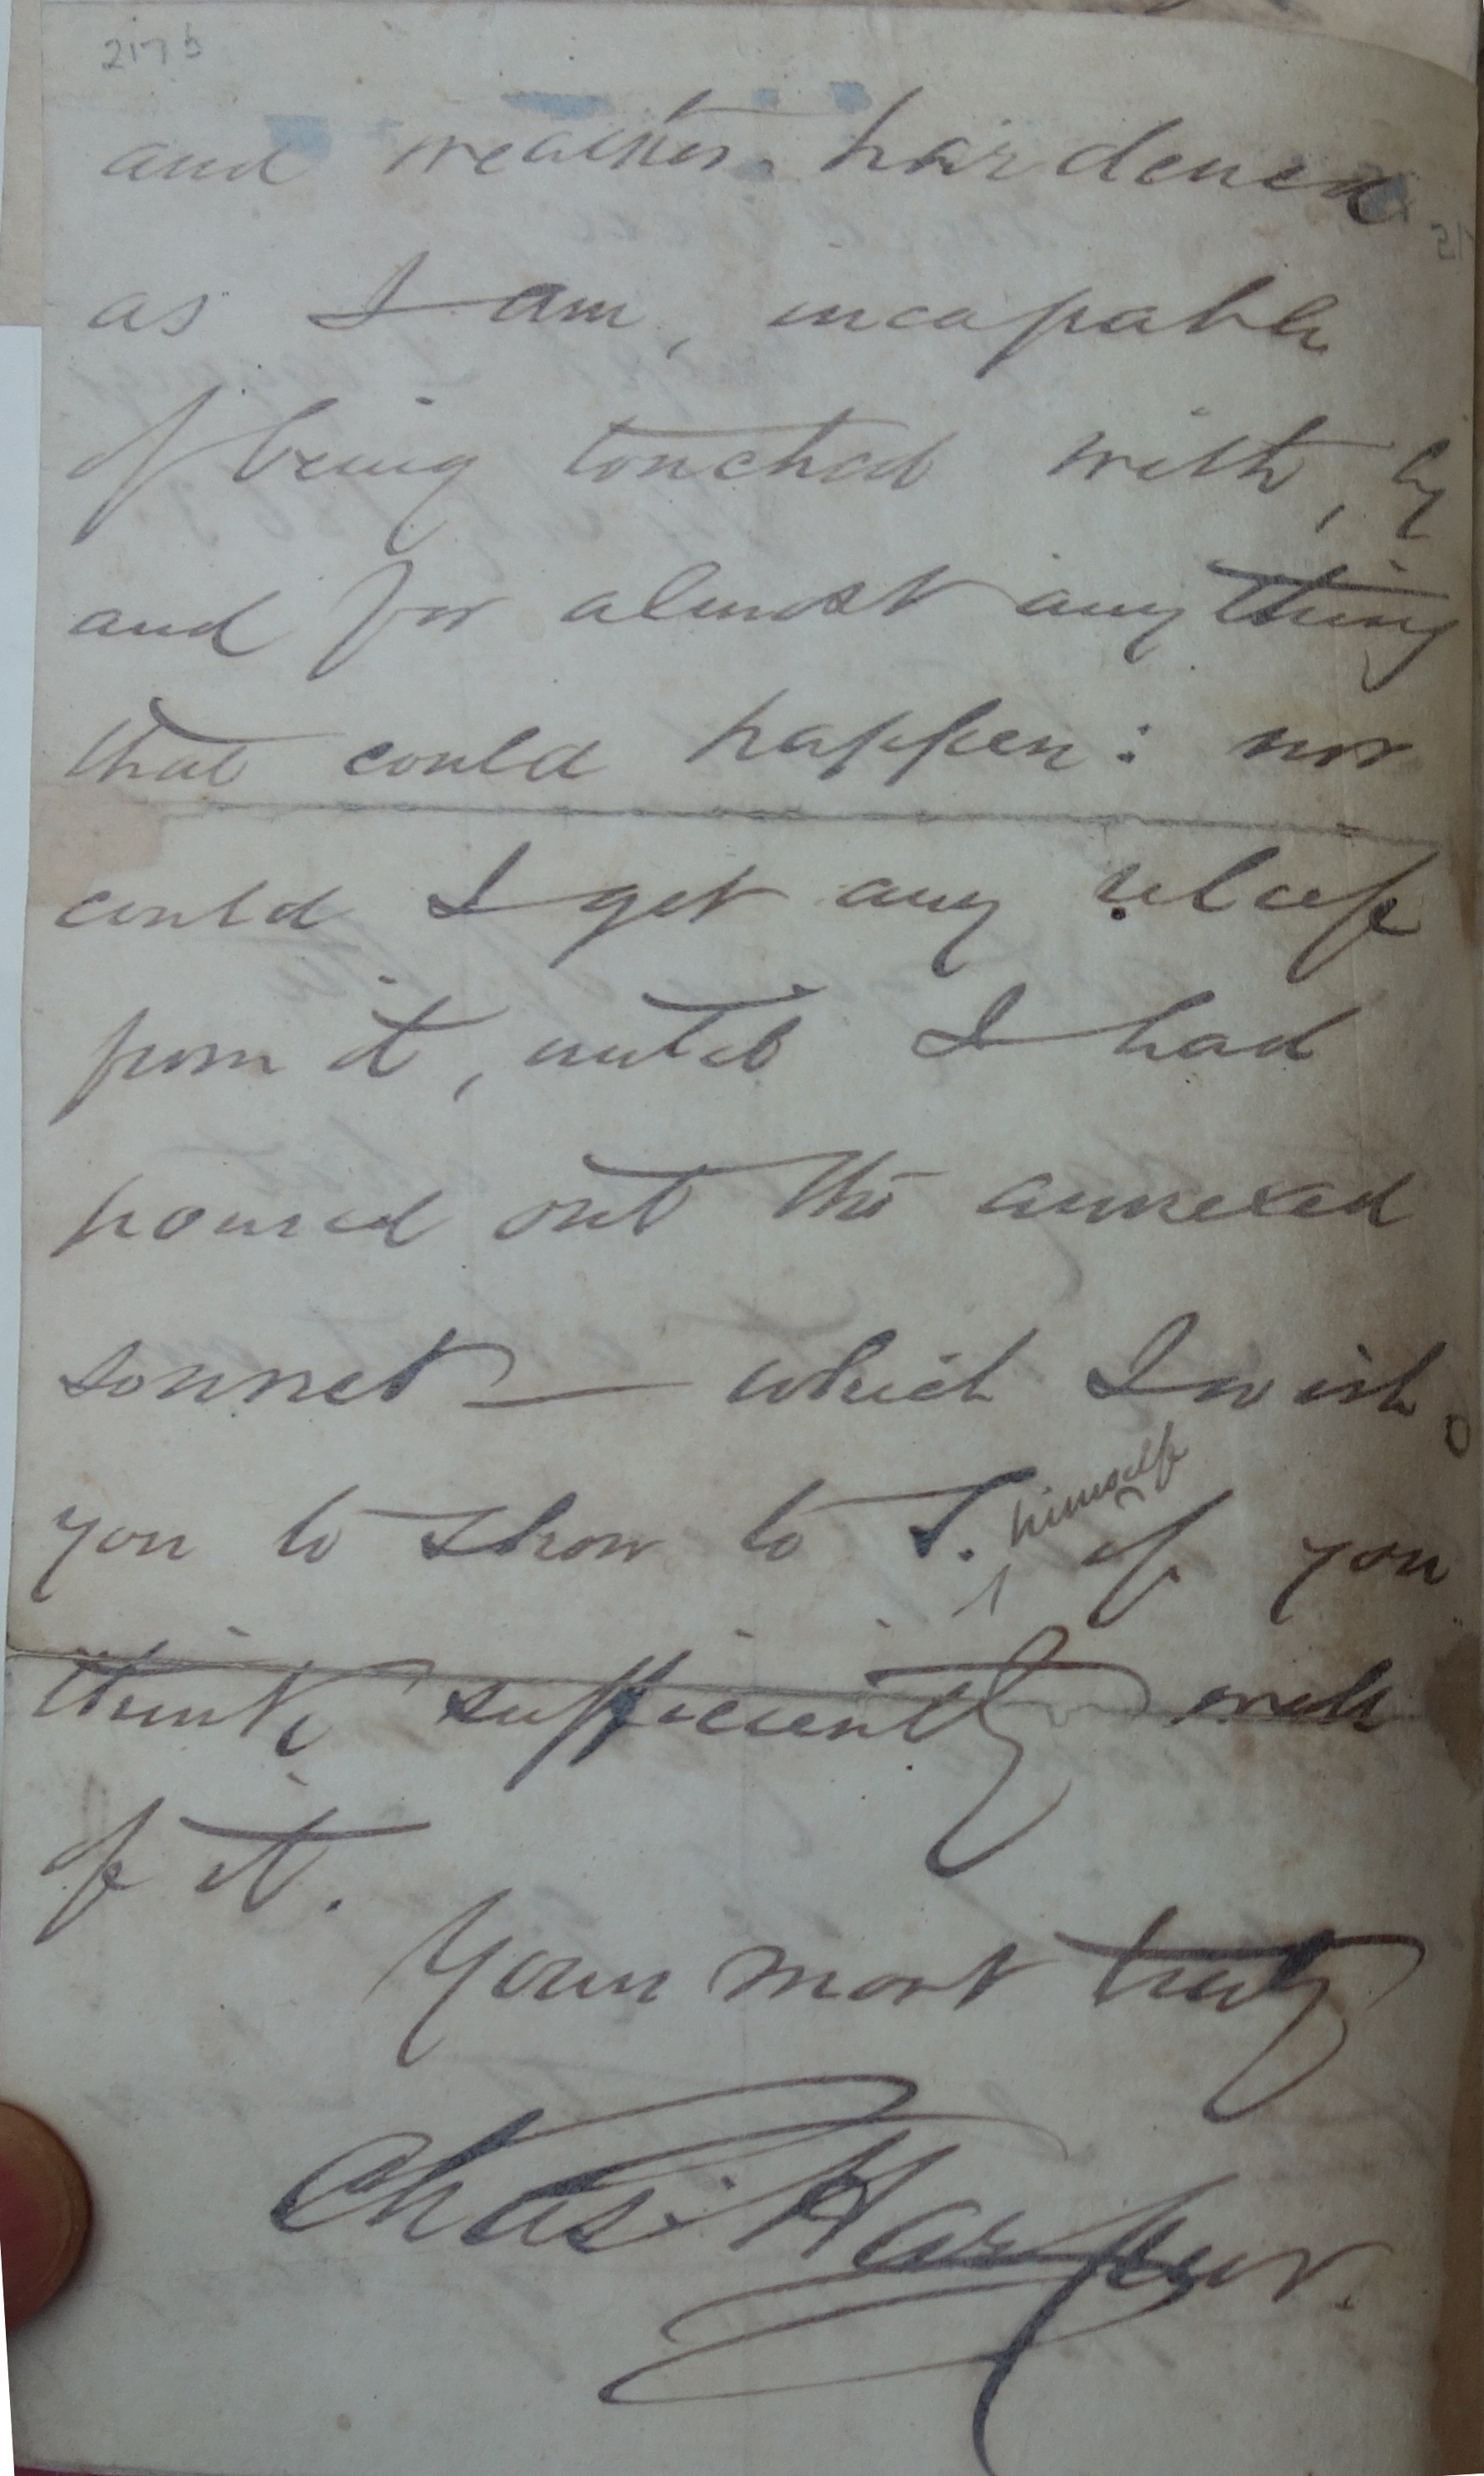 217b
and weather-hardened
as I am, incapable
of being touched with, by
and for almost anything
that could happen: nor
could I get any relief
from it, until I had
poured out the annexed
sonnet — which I wish
you to show to S. himself if you
think sufficiently well
of it.
Yours most truly
Chas. Harpur.